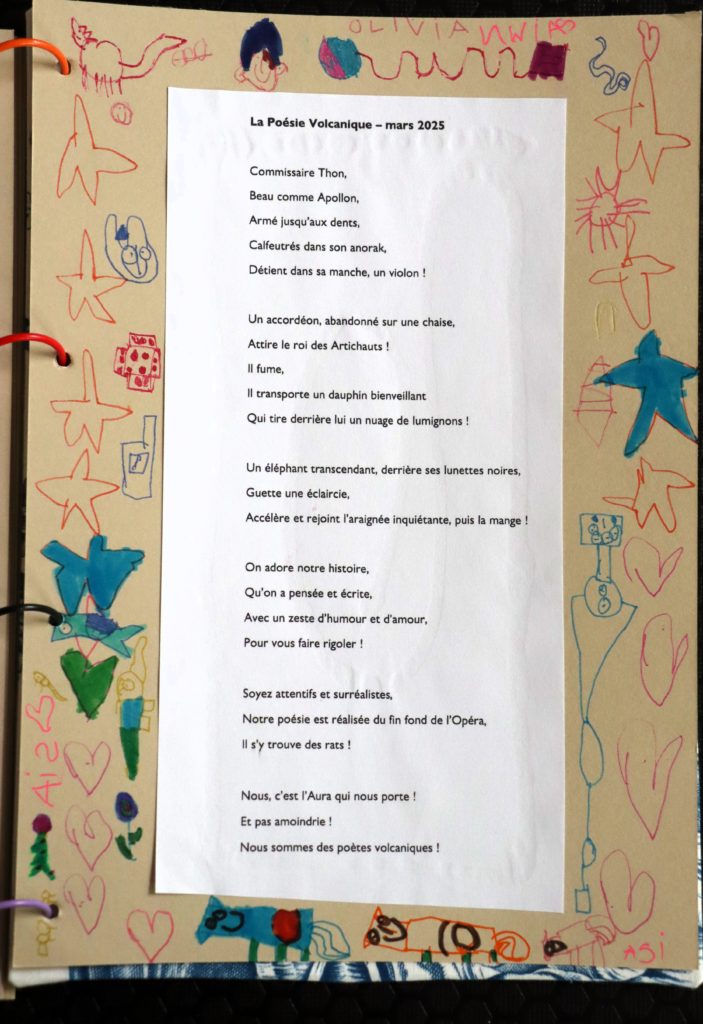 OLIVIA
La Poésie Volcanique – mars 2025
Commissaire Thon,
Beau comme Apollon,
Armé jusqu'aux dents,
Calfeutrés dans son anorak,
Détient dans sa manche, un violon !
Un accordéon, abandonné sur une chaise,
Attire le roi des Artichauts !
Il fume,
Il transporte un dauphin bienveillant
Qui tire derrière lui un nuage de lumignons !
Un éléphant transcendant, derrière ses lunettes noires,
Guette une éclaircie,
Accélère et rejoint l'araignée inquiétante, puis la mange !
On adore notre histoire,
Qu'on a pensée et écrite,
Avec un zeste d'humour et d'amour,
Pour vous faire rigoler !
Soyez attentifs et surréalistes,
Notre poésie est réalisée du fin fond de l'Opéra,
Il s'y trouve des rats !
Nous, c'est l'Aura qui nous porte !
Et pas amoindrie !
Nous sommes des poètes volcaniques !